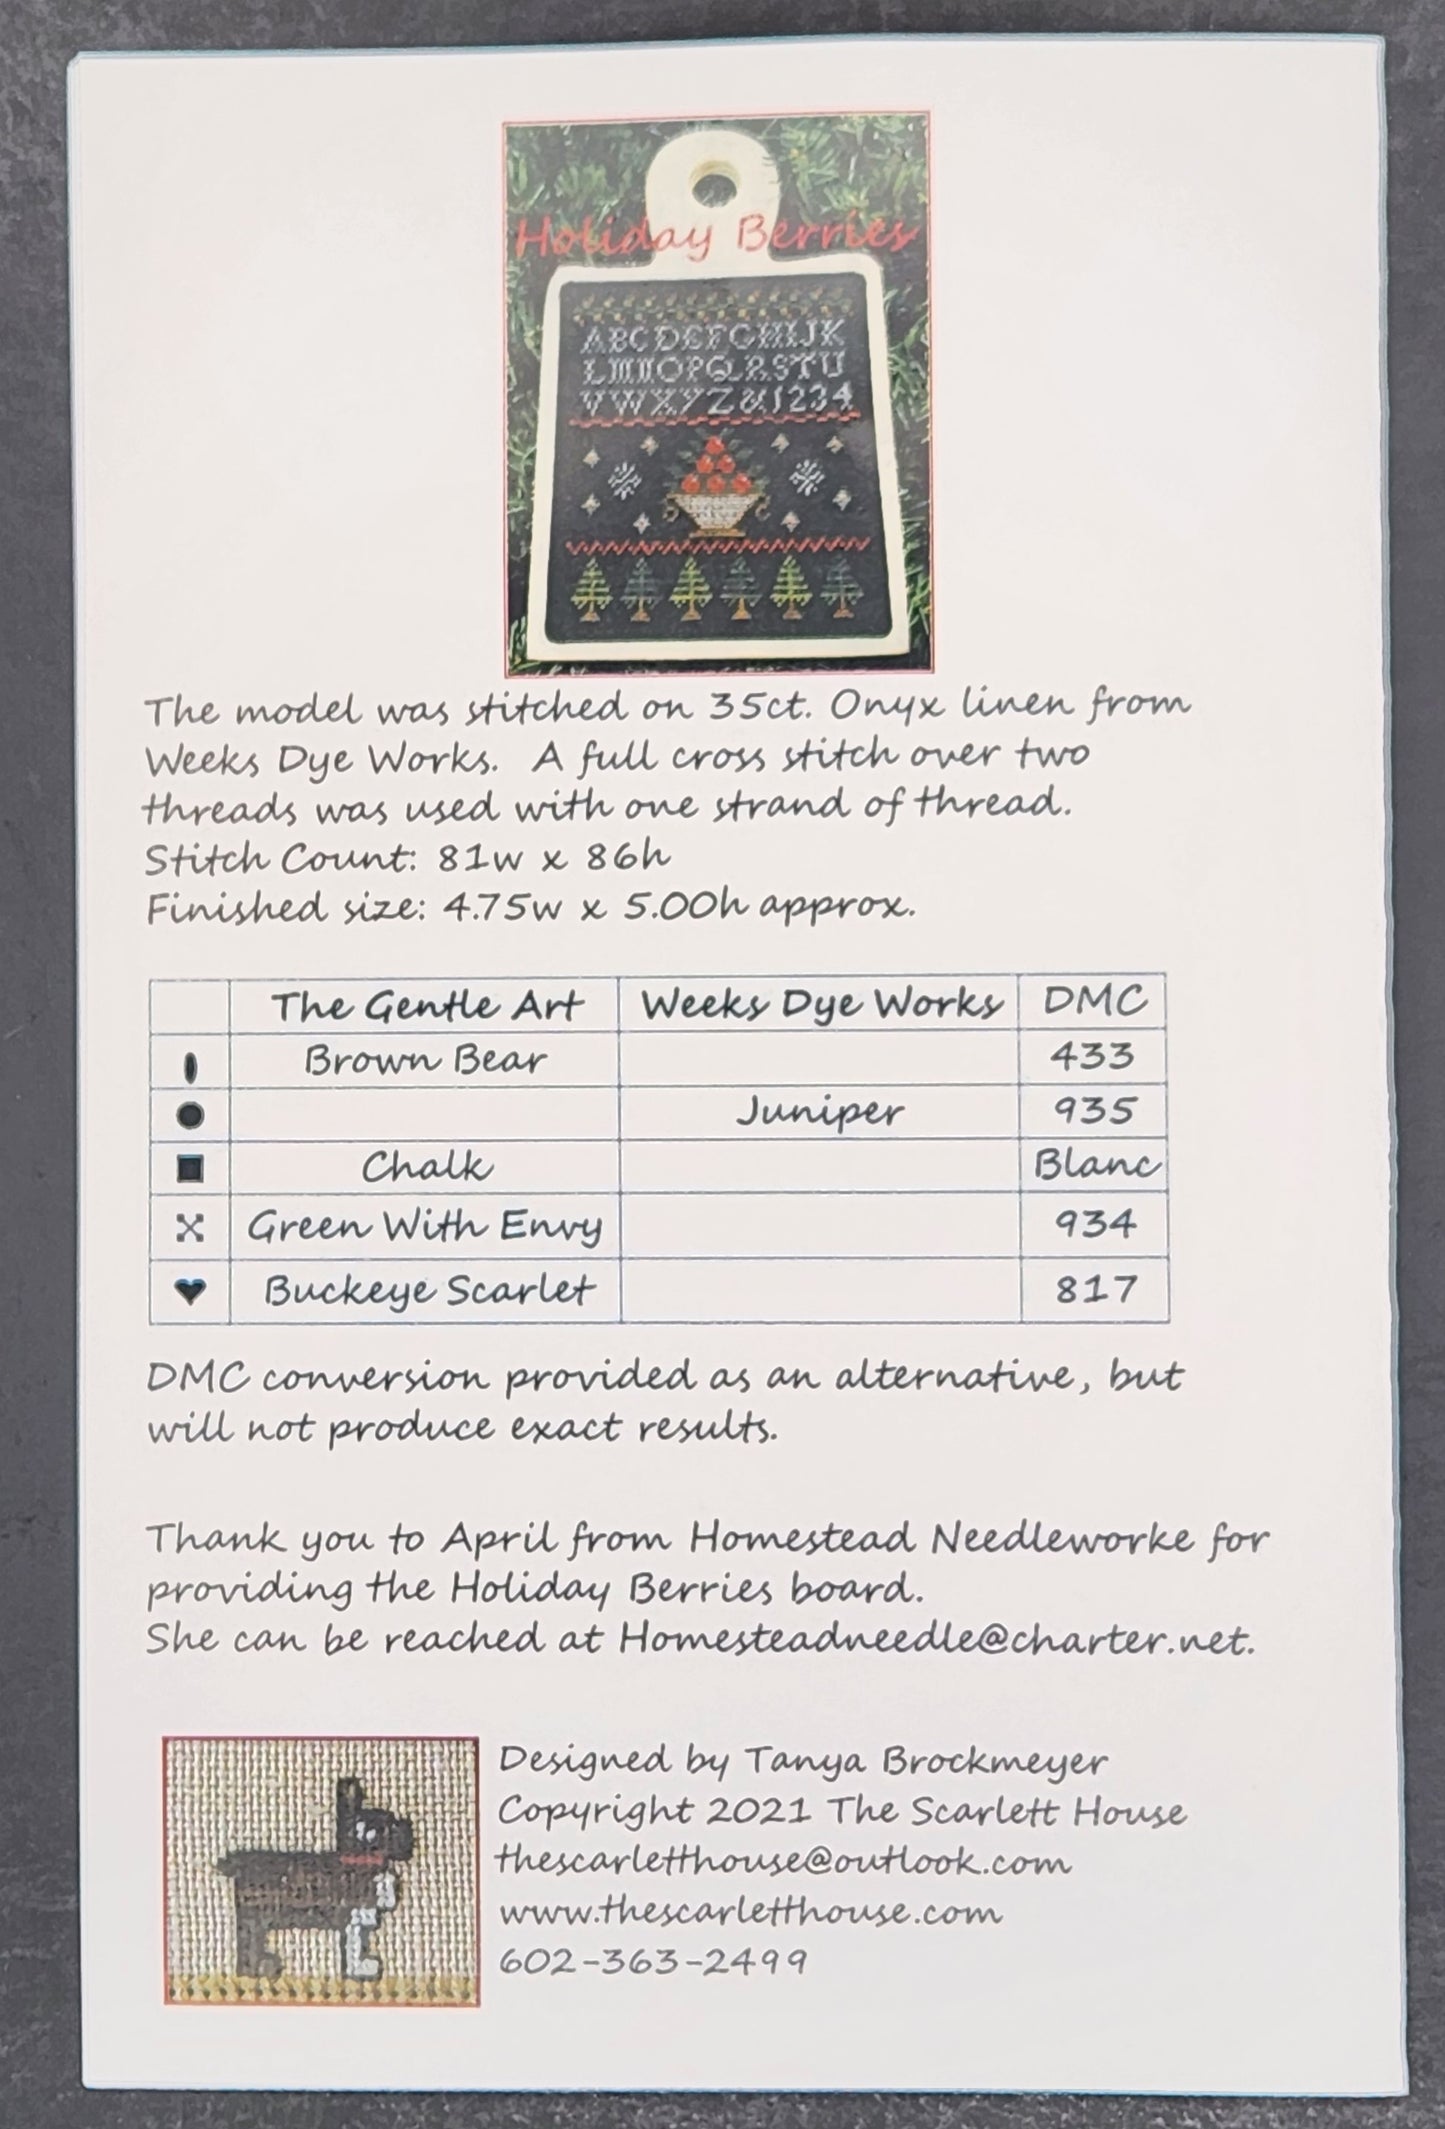 Holiday Berries
ABCDEFGHIJK
LMNOPQRSTU
VWXYZ&1234
The model was stitched on 35ct. Onyx linen from
Weeks Dye Works. A full cross stitch over two
threads was used with one strand of thread.
Stitch Count: 81w x 86h
Finished size: 4.75w x 5.00h approx.
The Gentle Art Weeks Dye Works DMC
Brown Bear 433
Juniper 935
Chalk Blanc
Green With Envy 934
Buckeye Scarlet 817
DMC conversion provided as an alternative, but
will not produce exact results.
Thank you to April from Homestead Needleworke for
providing the Holiday Berries board.
She can be reached at Homesteadneedle@charter.net.
Designed by Tanya Brockmeyer
Copyright 2021 The Scarlett House
thescarletthouse@outlook.com
www.thescarletthouse.com
602-363-2499